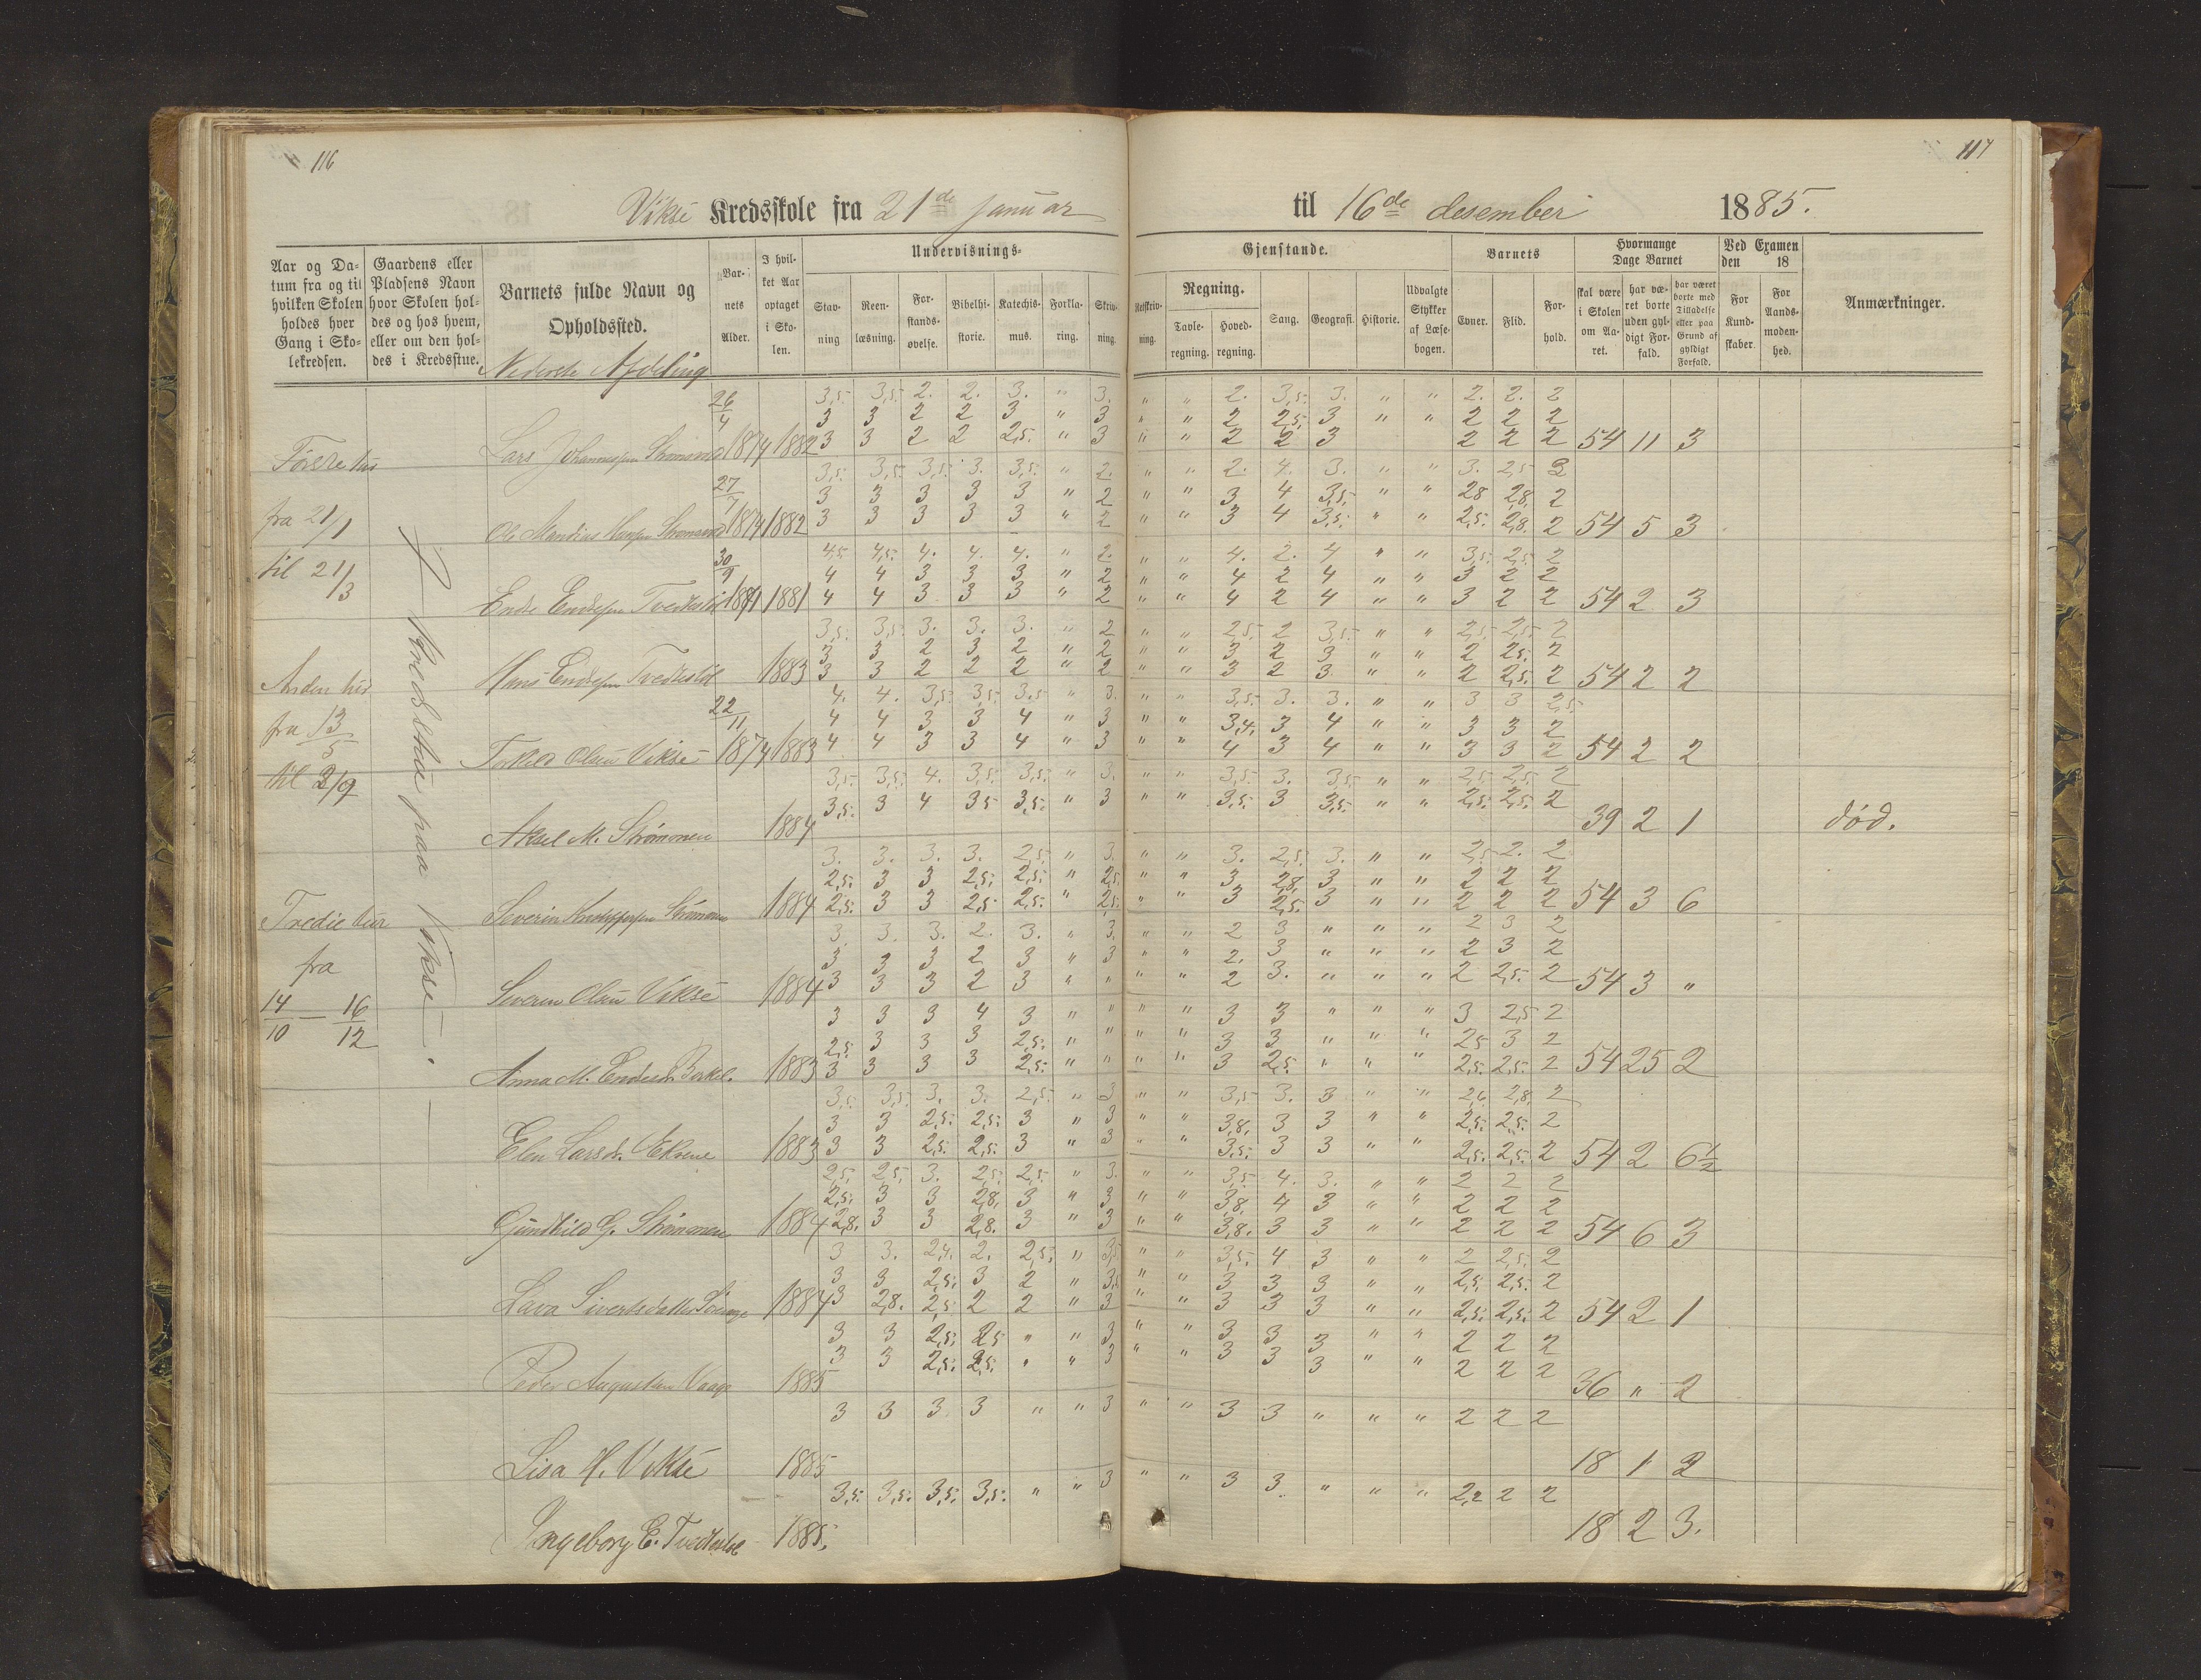 116
117
Viksé Kredsskole fra 21de januar til 16de desember 1885.
Aar og Datum fra og til hvilken Skolen holdes hver Gang i Skolekredsen.
Gaardens eller Pladsens Navn hvor Skolen holdes og hos hvem, eller om den holdes i Kredsstue.
Barnets fulde Navn og Opholdssted.
Barnets Alder.
I hvilket Aar optaget i Skolen.
Undervisnings-
Gjenstande.
Stavning
Reenlæsning.
Forstandsøvelse.
Bibelhistorie.
Katechismus.
Forklaring.
Skrivning.
Retskrivning.
Regning.
Tavleregning.
Hovedregning.
Sang.
Geografi.
Historie.
Udvalgte Stykker af Læsebogen.
Barnets
Evner.
Flid.
Forhold.
Hvormange Dage Barnet
skal være i Skolen om Aaret.
har været borte uden gyldigt Forfald.
har været borte med Tilladelse eller paa Grund af gyldigt Forfald.
Ved Examen den 18
For Kundskaber.
For Aandsmodenhed.
Anmærkninger.
Nederste Afdeling
fra 21/1
til 21/3
fra 13/5
til 3/9
Tredie
fra
14/10 — 16/12
paa Viksé
26/4
3,5 3,5 2. 2. 3. " 3. " " 2. 3,5 3. " " 2. 2. 2
3 3 2 2 3 " 3 " " 2 2,5 3 " " 2 2 2
Lars Johannessen 1874 1882 3 3 2 2 2,5 " 3 " " 2 2 3 2 2 2 54 11 3
3,5 3,5 3,5 3. 3,5 " 2. " " 2. 4. 3. " " 3. 2,5 2
27/7 3 3 3 3 3 " 2 " " 3 4 3,5 " " 28 2,8 2
Ole 1874 1882 3 3 3 3 3 " 2 " " 3 4 3,5 " " 2,5 2,8 2 54 5 3
30/9
4,5 4,5 4. 4. 4. " 2. " " 4. 2. 4 " " 3,5 2,5 2
4 4 3 3 3 " 2 " " 4 2 4 " " 3 2 2
Endre Endresen 1881 4 4 3 3 3 " 2 " " 4 2 4 " " 3 2 2 54 2 3
3,5 3,5 3. 3. 3. " 2 " " 2,5 2 3,5 " " 2,5 2,5 2
3 3 2 3 2 " 2 " " 3 2 3 " " 2 2,5 2
Hans Endresen 1883 3 3 2 2 2 " 2 " " 3 2 3 " " 2 2,5 2 54 2 2
22/11
4. 4. 3,5 3,5 3,5 " 3. " " 3,5 3. 3. " " 3 3 2,5
4 4 3 3 4 " 3 " " 3,4 3 4 " " 3 3 2
Torkild Olsen Viksé 1874 1883 4 4 3 3 4 " 3 " " 4 3 4 " " 3 3 2 54 2 2
3,5 3,5 4. 3,5 3,5 " 3. " " 3,5 3. 3,5 " " 2,5 2,5 2
3,5 3 4 35 3,5 " 3 " " 3,5 3 3,5 " " 2,5 2,5 2
Aksel M. Strømonen 1884 39 2 1 død.
3. 3. 3. 3. 2,5 " 3. " " 3. 2,5 3. " " 2,5 2. 2
2,5 3 3 2,5 2,5 " 2,5 " " 3 2,8 3 " " 2 2 2
Severin 1884 2,5 3 3 2,5 2,5 " 2,5 " " 3 2,5 3 " " 2 2 2 54 3 6
3. 3. 3. 2. 3. " 3. " " 2 3 " " " 2 3 2
3 3 3 2 3 " 3 " " 2. 3 " " " 2 3 2
Severin Olsen Viksé 1884 3 3 3 2 3 " " " " 2 3. " " " 2 2,5 2 54 3 "
3 3 3 4 3 " " " " 3 3 " " " 3 2,5 2
2,5 3 3 3 2,5 " " " " 3 3 " " " 25 3 2
Anna M. 1883 3 3 3 3 2,5 " " " " 3 2,5 " " " 2,5 2,5 2 54 25 2
3,5 3,5 3. 3. 2,5 " 3 " " 3,5 3. 3 " " 2,6 2,8 2
3 3 2,5 2,5 3 " 3 " " 3,8 3 3 " " 2,5 2,5 2
Elen Larsd. 1883 3 3 2,5 2,5 3 " 3 " " 3,5 3 3 " " 2,5 2,5 2 54 2 6½
2,5 2,5 3. 2,5 2,5 " 3. " " 3,5 4. 3. " " 2 2 2
2,5 3 3 2,8 3 " 3 " " 3,8 4 3 " " 2 2 2
Gunhild G. Strømonen 1884 2,8 3 3 2,8 3 " 3 " " 3,8 3 3 " " 2 2 2 54 6 3
3 3. 2,4 2. 2,5 " 3,5 " " 3,5 4 3 " " 2 2,5 2
3 3 2,5 3 2 " 3,5 " " 3 3 3 " " 2,5 2,5 2
Lava Sivertsdatter 1884 3 2,8 2,5 2 2 " 3 " " 3 3 3 " " 2,5 2,5 2 54 2 1
3 3 2,5 2,5 " " 3 " " 3 3 3 " " 2 2 2
3 3 2,5 2,5 " " 3 " " 3 3 3 " " 2 2 2
Peder 1885 36 " 2
3 3 3 3 " " 3 " " 3 3 " " " 2 2 2
Lisa H. Viksé 1885 18 1 2
3,5 3,5 3,5 3,5 " " 3 " " 3 3. " " " 2,2 2 2
Ingeborg E. 1885. 18 2 3.